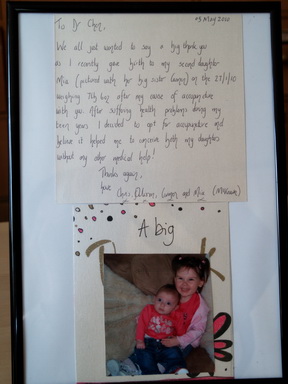 To Dr Chen,
May 2010
We all just wanted to say a big thank you
as I recently gave birth to my second daughter
Mia (pictured with her big sister
weighing 7lb 6oz after my course of acupuncture
with you. After suffering health problems during my
teen years I decided to opt for acupuncture and
believe it helped me to conceive both my daughters
without any other medical help!
Thanks again,
Love Chris, and Mia
A big